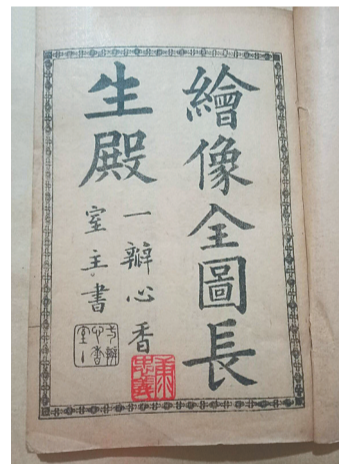 繪像全圖長
生殿
一瓣心香
室主書